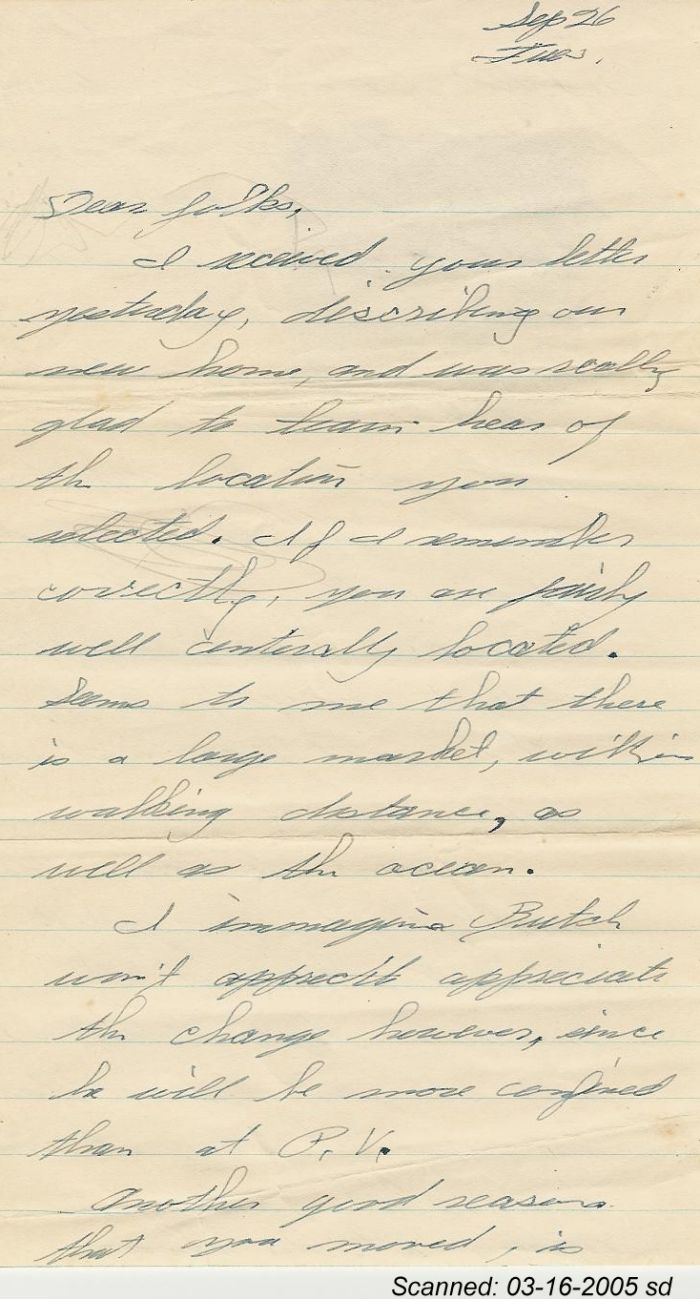 Sep 26
Tues.
Dear folks,
I received your letter
yesterday, describing our
new home, and was really
glad to learn hear of
the location you
selected. If I remember
correctly, you are fairly
well centerally located.
Seems to me that there
is a large market, within
walking distance, as
well as the ocean.
I immagine Butch
won't apprecit appreciate
the change however, since
he will be more confined
than at P.V.
Another good reason
that you moved, is
Scanned: 03-16-2005 sd